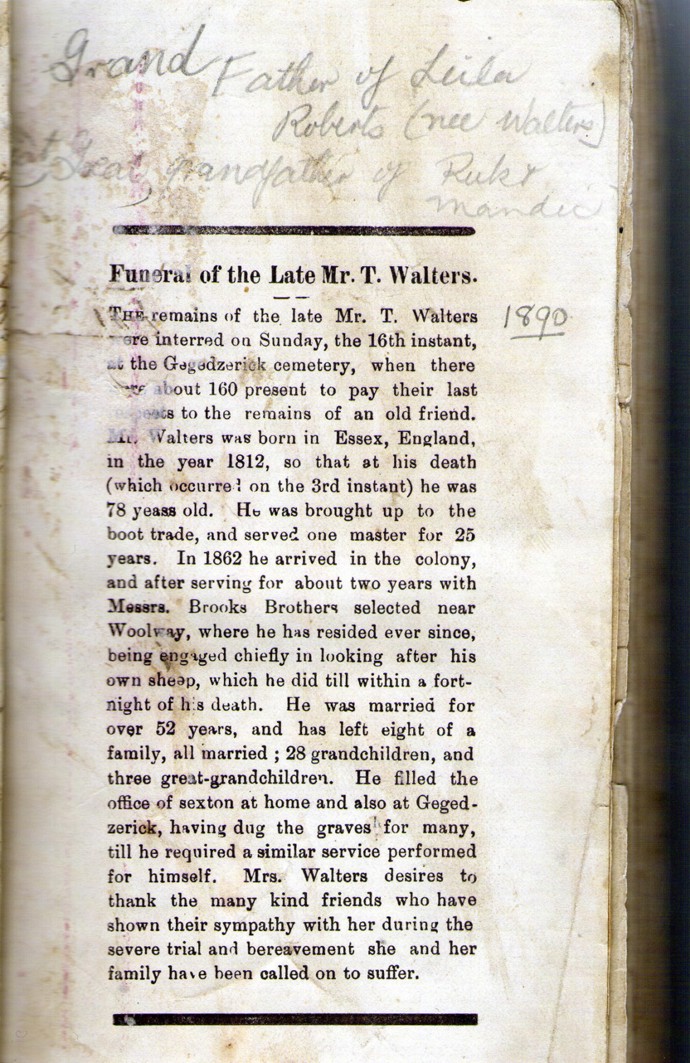 Grand Father of Leila
Roberts (nee Walters)
Great grandfather of
Mandic
Funeral of the Late Mr. T. Walters.
THE remains of the late Mr. T. Walters
were interred on Sunday, the 16th instant,
1890
at the Gegedzerick cemetery, when there
were about 160 present to pay their last
respects to the remains of an old friend.
Mr. Walters was born in Essex, England,
in the year 1812, so that at his death
(which occurred on the 3rd instant) he was
78 yeass old. He was brought up to the
boot trade, and served one master for 25
years. In 1862 he arrived in the colony,
and after serving for about two years with
Messrs. Brooks Brothers selected near
Woolway, where he has resided ever since,
being engaged chiefly in looking after his
own sheep, which he did till within a fort-
night of his death. He was married for
over 52 years, and has left eight of a
family, all married ; 28 grandchildren, and
three great-grandchildren. He filled the
office of sexton at home and also at Geged-
zerick, having dug the graves for many,
till he required a similar service performed
for himself. Mrs. Walters desires to
thank the many kind friends who have
shown their sympathy with her during the
severe trial and bereavement she and her
family have been called on to suffer.